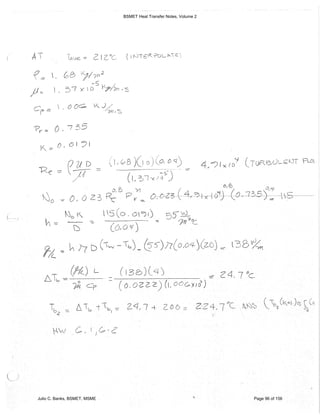 BSMET Heat Transfer Notes, Volume 2
AT Tave = 212°C (INTERPOLATE)
ρ = 1.68 kg/m²
μ = 1.37 x 10⁻⁵ kg/m·s
Cp = 1.006 KJ/
Pr = 0.735
K = 0.0191
Re = (ρ U D / μ) = (1.68)(10)(0.04) / (1.37x10⁻⁵) = 4.91x10⁴ (TURBULENT FLO
Nu = 0.023 Re^0.8 Pr^n = 0.023 (4.91x10⁴)^0.8 (0.735)^0.4 = 115
h = Nu K / D = 115(0.0191) / (0.04) = 55 W/m²°C
q/L = h π D (Tw - Tb) = (55)π(0.04)(20) = 138 W/m
ΔTb = (q/L) L / ṁ Cp = (138)(4) / (0.0222)(1.006x10³) = 24.7°C
Tb2 = ΔTb + Tb1 = 24.7 + 200 = 224.7°C
HW 6.1, 6-2
Julio C. Banks, BSMET, MSME
Page 96 of 158